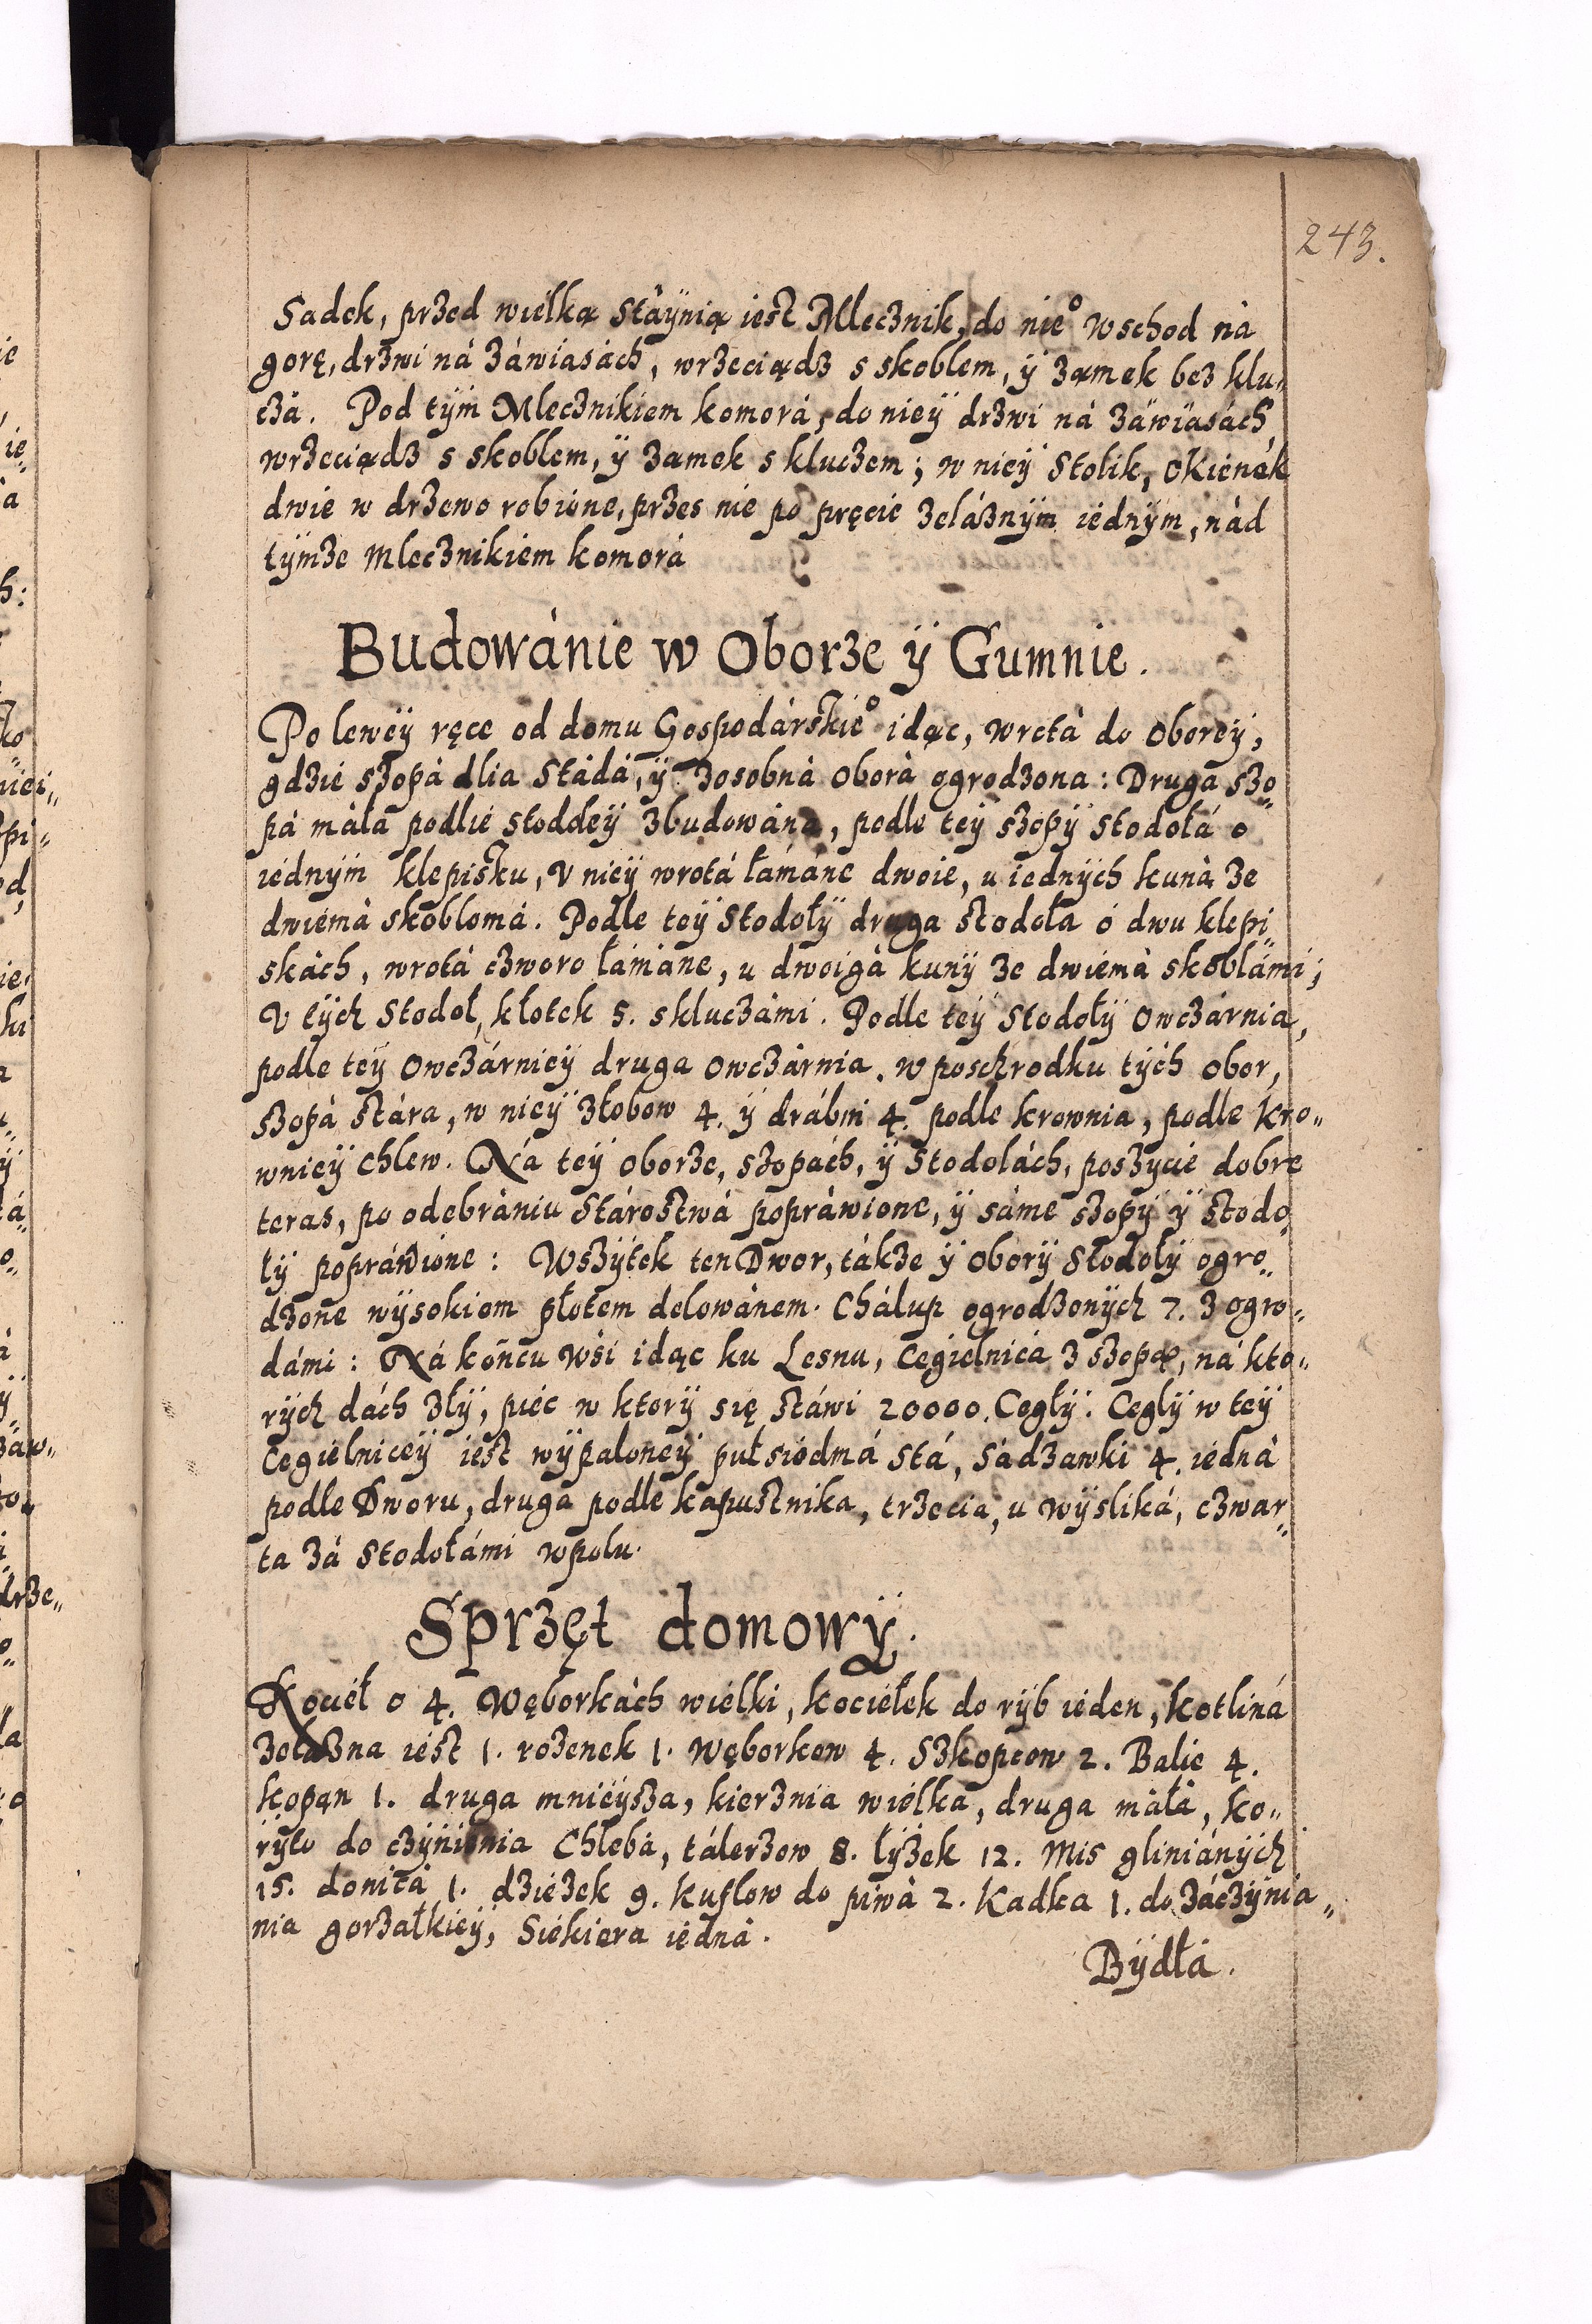 243.
Sadek, przed wielką Stáynią iest Mlecznik, do nie° wschod ná
gorę, drzwi ná záwiasách, wrzeciądz s skoblem, ÿ zamek bez klu„
czá. Pod tÿm Mlecznikiem komorá, do nieÿ drzwi ná záwiasách
wrzeciądz s skoblem, ÿ zamek s kluczem; w nieÿ Stolik, Okienek
dwie w drzewo robione, przes nie po pręcie zeláznÿm iednÿm, nád
tÿmze Mlecznikiem komorá
Budowánie w Oborze ÿ Gumnie.
Po leweÿ ręce od domu Gospodárskie° idąc, wrotá do Oboreÿ,
gdzie szopá dlia Stádá, ÿ zosobná Oborá ogrodzona: Druga szo„
pá máła podlie stodoleÿ zbudowána, podle teÿ szopÿ Stodołá o
iednÿm klepisku, V nieÿ wrotá łámáne dwoie, u iednÿch kuná ze
dwiemá skoblomá. Podle teÿ Stodołÿ druga stodoła o dwu klepi„
skách, wrotá czworo łámáne, u dwoigá kunÿ ze dwiemá skoblámi;
V tÿch Stodoł, kłotek 5. s kluczámi. Podle teÿ Stodołÿ Owczárnia,
podle teÿ Owczárnieÿ druga Owczárnia. w poschrodku tÿch Obor,
szopá stára, w nieÿ złobow 4. ÿ drábin 4. podle krownia, podle kro„
wnieÿ chlew. Ná teÿ oborze, szopách, ÿ Stodolách, poszycie dobre
teras, po odebrániu Stárostwá popráwione, ÿ sáme szopÿ ÿ stodo„
łÿ popráwione: Wszÿtek ten Dwor, tákze ÿ Oborÿ Stodołÿ ogro„
dzone wÿsokiem płotem delowánem. Cháłup ogrodzonÿch 7. z ogro„
dámi: Ná końcu wśi idąc ku Lesnu, Cegielnica z szopą, ná kto„
rÿch dách złÿ, piec w ktorÿ się stáwi 20000. Cegłÿ. Cegłÿ w teÿ
Cegielniceÿ iest wÿpaloneÿ puł siodmá Stá, Sádzawki 4. iedná
podle Dworu, druga podle kapustnika, trzecia, u Wÿsliká, czwar„
ta zá Stodołámi w polu.
Sprzęt domowÿ.
Kocieł o 4. Węborkách wielki, kociełek do rÿb ieden, kotliná
zelázna iest 1. rozenek 1. Węborkow 4. Szkopcow 2. Balie 4.
kopąn 1. druga mnieÿsza, kierznia wielka, druga máłá, ko„
rÿto do czÿnienia Chlebá, tálerzow 8. łÿzek 12. Mis gliniánÿch
15. donicá 1. dziezek 9. kuflow do piwá 2. Kadka 1. do záczÿnia„
nia gorzałkieÿ, Siekiera iedná.
Bÿdłá.